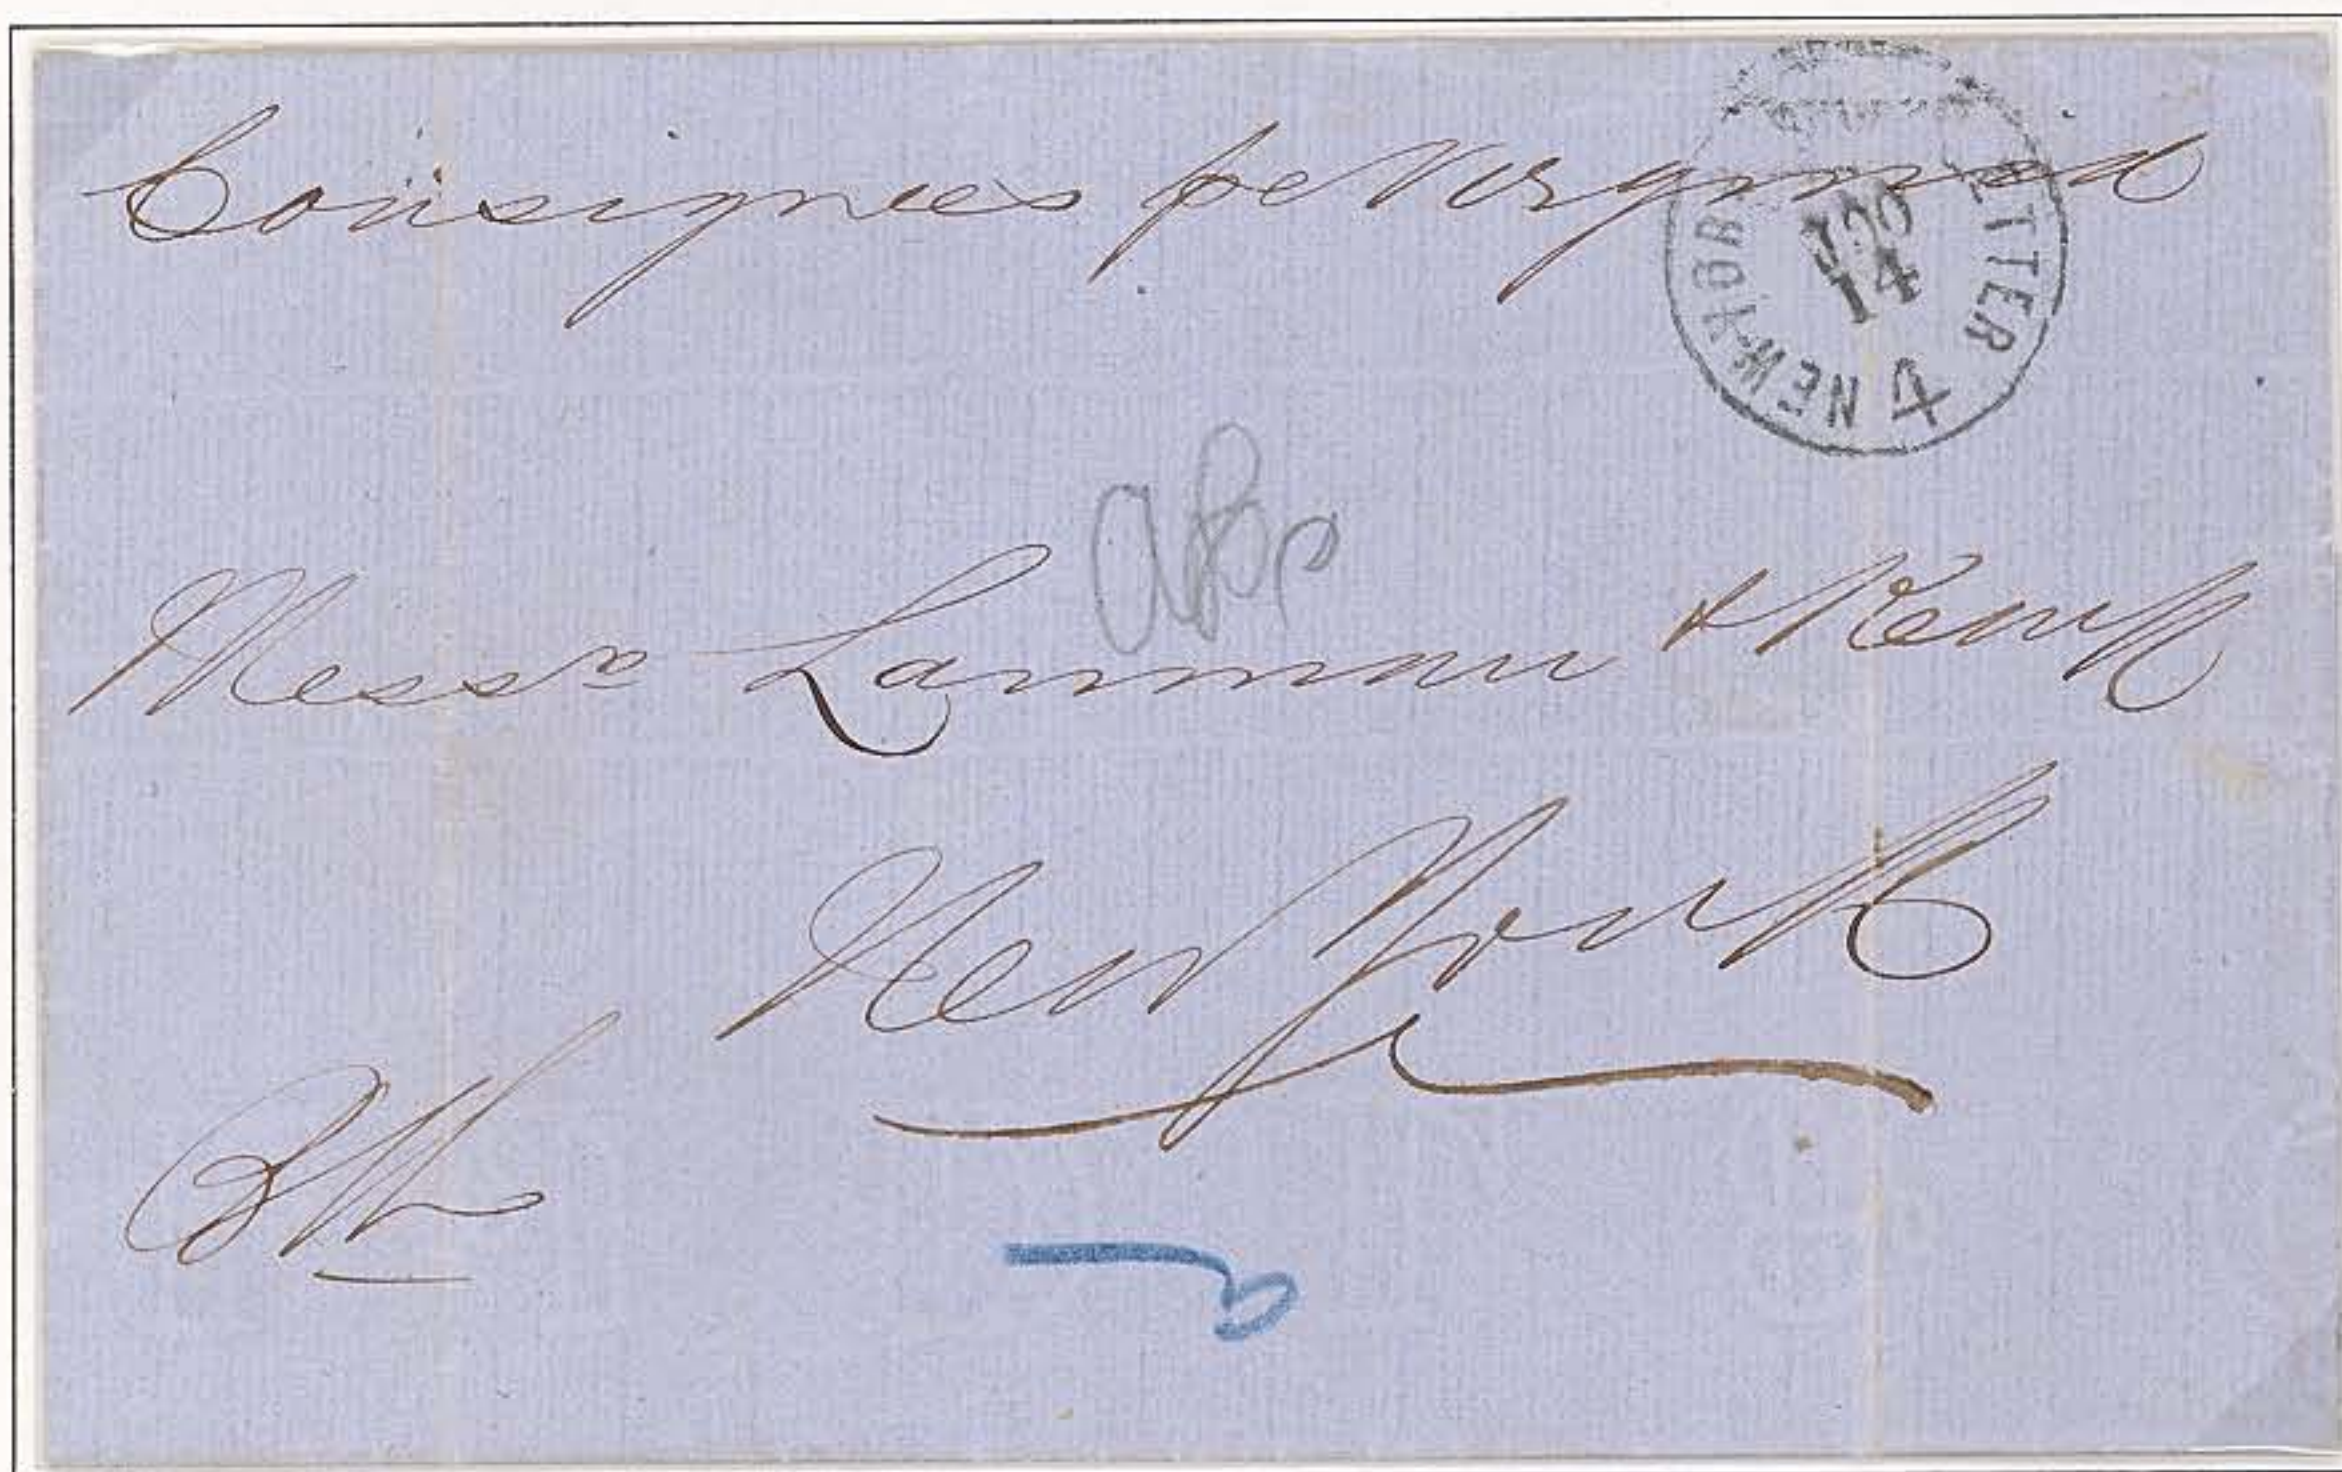 Consignees pr Virginia
NEW-YORK
ETTER
14
4
Messrs Lanman & Kemp
New York